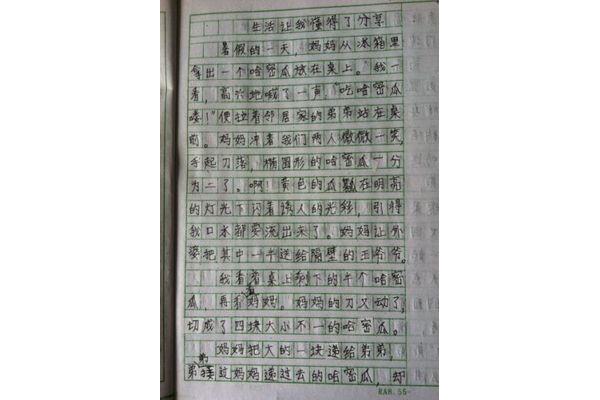 生活让我懂得了分享
暑假的一天，妈妈从冰箱里
拿出一个哈密瓜放在桌上。我一
看，高兴地喊了一声，“吃哈密瓜
喽！”便拉着邻居家的弟弟站在桌
前。妈妈冲着我们两人微微一笑，
手起刀落，椭圆形的哈密瓜一分
为二了。啊！黄色的瓜瓤在明亮
的灯光下闪着诱人的光丝，引得
我口水都要流出来了。妈妈让外
婆把其中一半送给隔壁的王爷爷。
我看着桌上剩下的半个哈密
瓜，再看看妈妈。妈妈的刀又动了。
切成了四块大小不一的哈密瓜。
妈妈把大的一块递给弟弟，
弟弟接过妈妈递过去的哈密瓜，却
RAR.55-